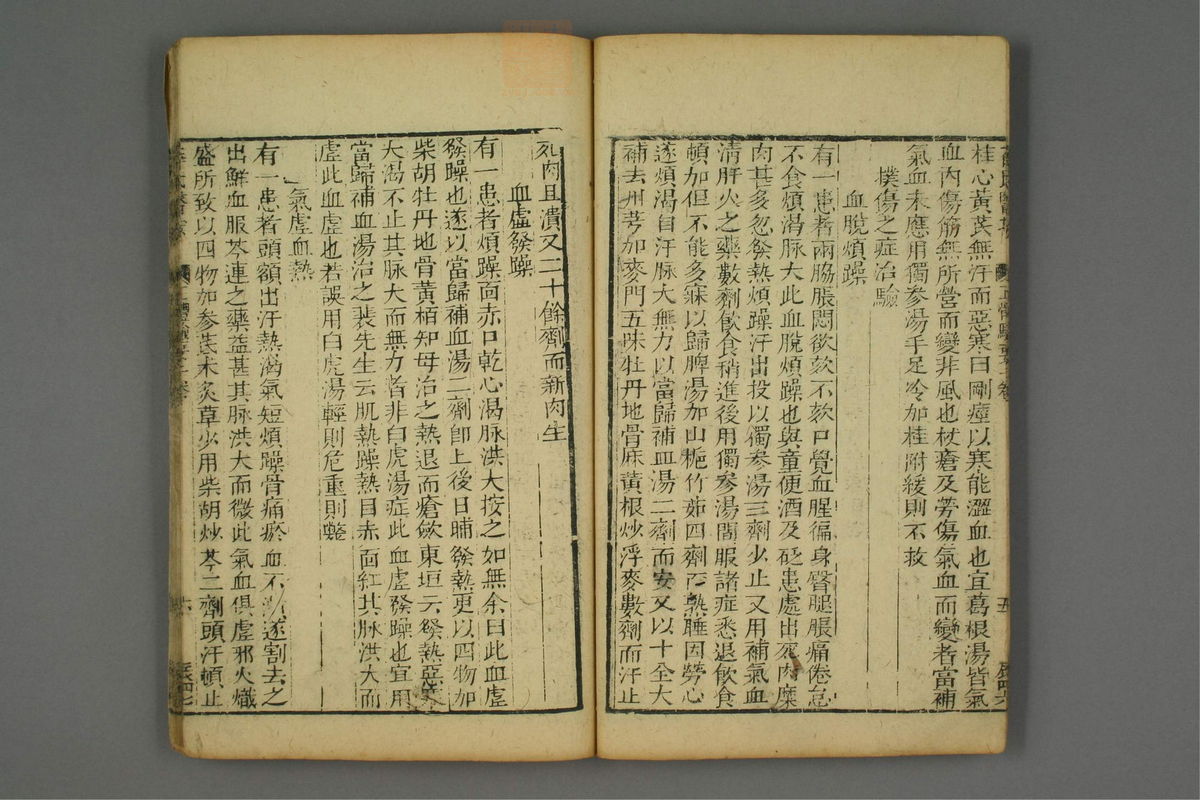 桂心黃芪無汗而惡寒曰剛痙以寒能澀血也宜葛根湯皆氣
血內傷筋無所營而變非風也杖瘡及勞傷氣血而變者當補
氣血未應用獨參湯手足冷加桂附緩則不救
撲傷之症治驗
血脫煩躁
有一患者兩脇脹悶欲欬不欬口覺血腥徧身臀腿脹痛倦怠
不食煩渴脉大此血脫煩躁也與童便酒及砭患處出死肉糜
肉甚多忽發熱煩躁汗出投以獨參湯三劑少止又用補氣血
清肝火之藥數劑飲食稍進後用獨參湯間服諸症悉退飲食
頓加但不能多寐以歸脾湯加山梔竹茹四劑而熟睡因勞心
遂煩渴自汗脉大無力以當歸補血湯二劑而安又以十全大
補去川芎加麥門五味牡丹地骨麻黃根炒浮麥數劑而汗止
死肉且潰又二十餘劑而新肉生
血虛發躁
有一患者煩躁面赤口乾心渴脉洪大按之如無余曰此血虛
發躁也遂以當歸補血湯二劑卽止後日晡發熱更以四物加
柴胡牡丹地骨黃栢知母治之熱退而瘡斂東垣云發熱惡寒
大渴不止其脉大而無力者非白虎湯症此血虛發躁也宜用
當歸補血湯治之裴先生云肌熱躁熱目赤面紅其脉洪大而
虛此血虛也若誤用白虎湯輕則危重則斃
氣虛血熱
有一患者頭額出汗熱渴氣短煩躁骨痛瘀血不遂割去之
出鮮血服芩連之藥益甚其脉洪大而微此氣血俱虛邪火熾
盛所致以四物加參芪朮炙草少用柴胡炒芩二劑頭汗頓止